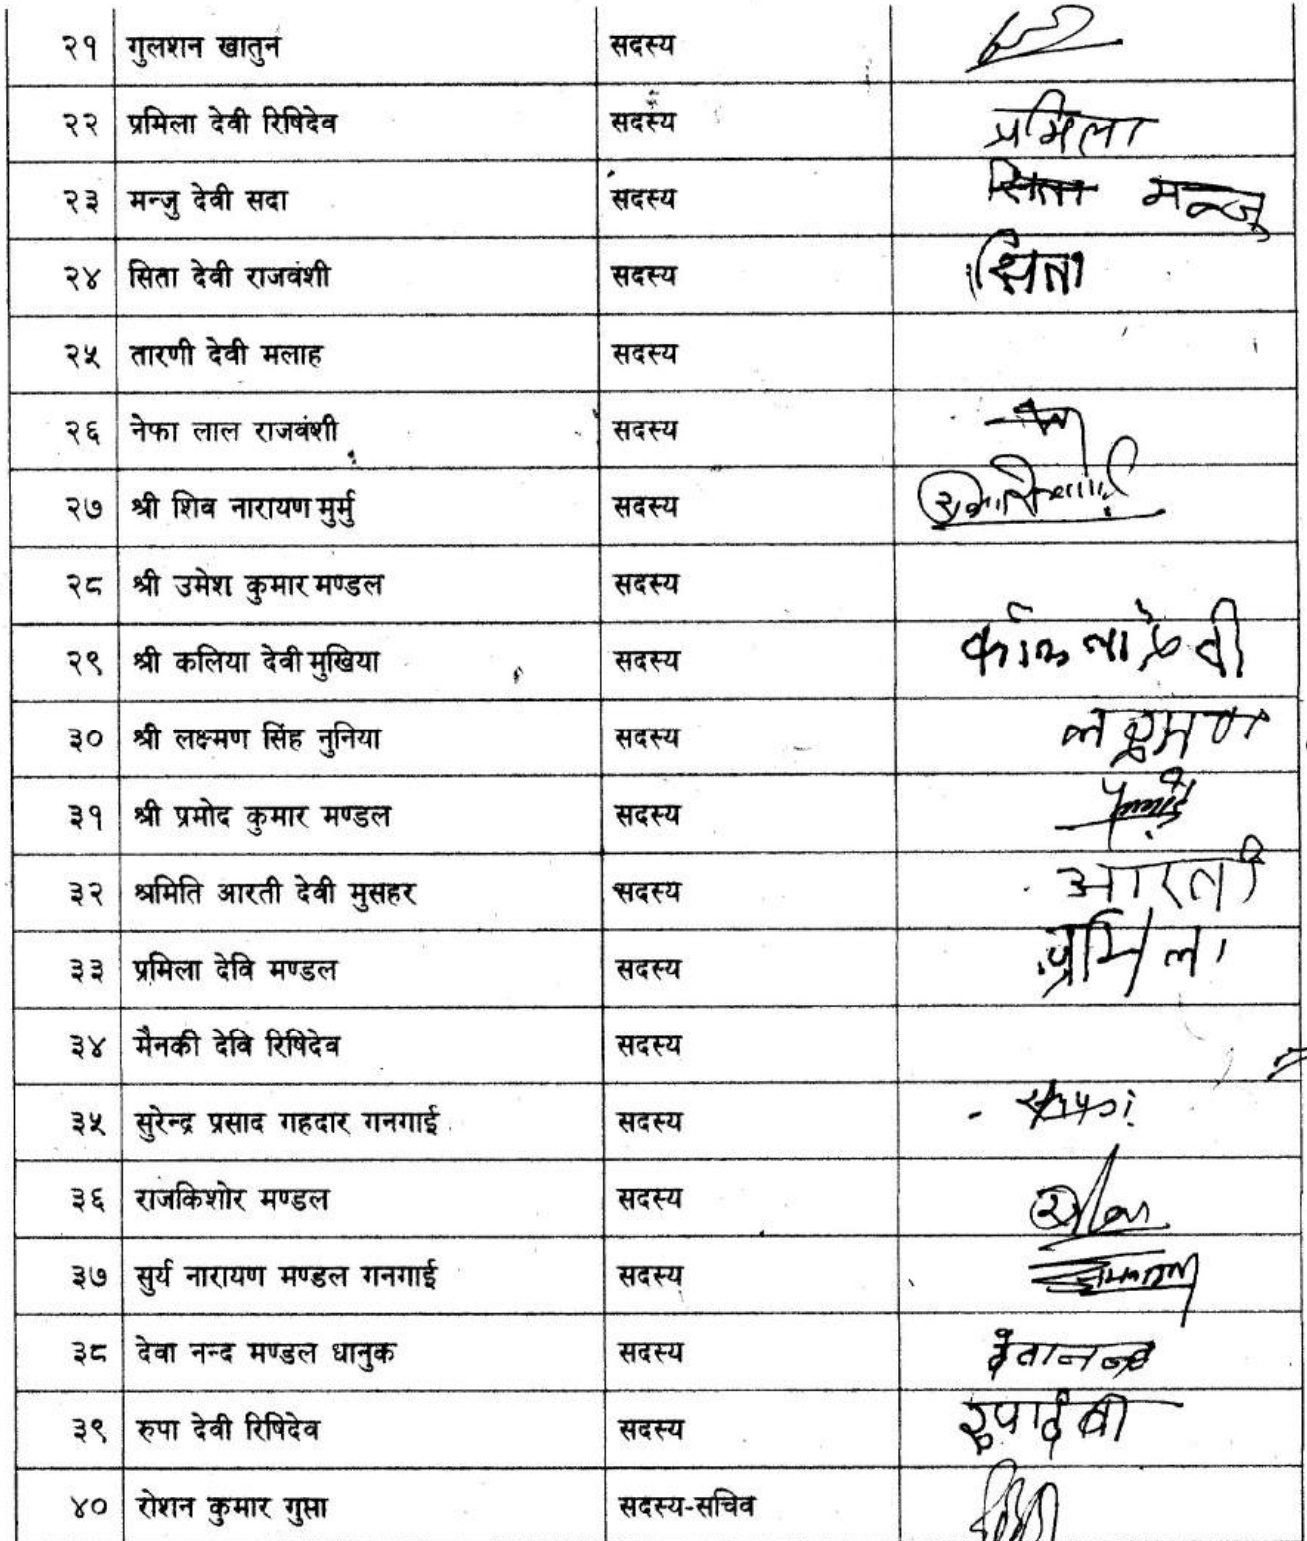 २१ गुलशन खातुन सदस्य
२२ प्रमिला देवी रिषिदेव सदस्य प्रमिला
२३ मन्जु देवी सदा सदस्य सिता मन्जु
२४ सिता देवी राजवंशी सदस्य सिता
२५ तारणी देवी मलाह सदस्य
२६ नेफा लाल राजवंशी सदस्य
२७ श्री शिव नारायण मुर्मु सदस्य
२८ श्री उमेश कुमार मण्डल सदस्य
२९ श्री कलिया देवी मुखिया सदस्य
३० श्री लक्ष्मण सिंह नुनिया सदस्य लक्ष्मण
३१ श्री प्रमोद कुमार मण्डल सदस्य
३२ श्रमिति आरती देवी मुसहर सदस्य आरती
३३ प्रमिला देवि मण्डल सदस्य प्रमिला
३४ मैनकी देवि रिषिदेव सदस्य
३५ सुरेन्द्र प्रसाद गहदार गनगाई सदस्य
३६ राजकिशोर मण्डल सदस्य
३७ सुर्य नारायण मण्डल गनगाई सदस्य
३८ देवा नन्द मण्डल धानुक सदस्य
३९ रुपा देवी रिषिदेव सदस्य रुपा देवी
४० रोशन कुमार गुप्ता सदस्य-सचिव